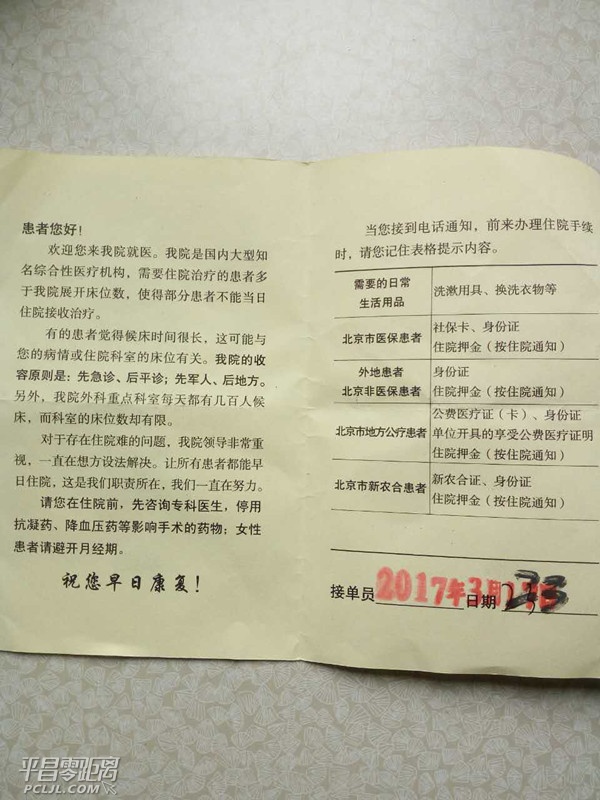 患者您好！
欢迎您来我院就医。我院是国内大型知
名综合性医疗机构，需要住院治疗的患者多
于我院展开床位数，使得部分患者不能当日
住院接收治疗。
有的患者觉得候床时间很长，这可能与
您的病情或住院科室的床位有关。我院的收
容原则是：先急诊、后平诊；先军人、后地方。
另外，我院外科重点科室每天都有几百人候
床，而科室的床位数却有限。
对于存在住院难的问题，我院领导非常重
视，一直在想方设法解决。让所有患者都能早
日住院，这是我们职责所在，我们一直在努力。
请您在住院前，先咨询专科医生，停用
抗凝药、降血压药等影响手术的药物；女性
患者请避开月经期。
祝您早日康复！
当您接到电话通知，前来办理住院手续
时，请您记住表格提示内容。
需要的日常
生活用品
洗漱用具、换洗衣物等
北京市医保患者
社保卡、身份证
住院押金（按住院通知）
外地患者
北京非医保患者
身份证
住院押金（按住院通知）
北京市地方公疗患者
公费医疗证（卡）、身份证
单位开具的享受公费医疗证明
住院押金（按住院通知）
北京市新农合患者
新农合证、身份证
住院押金（按住院通知）
接单员 2017年3月 日期
平昌零距离
PCLJL.COM